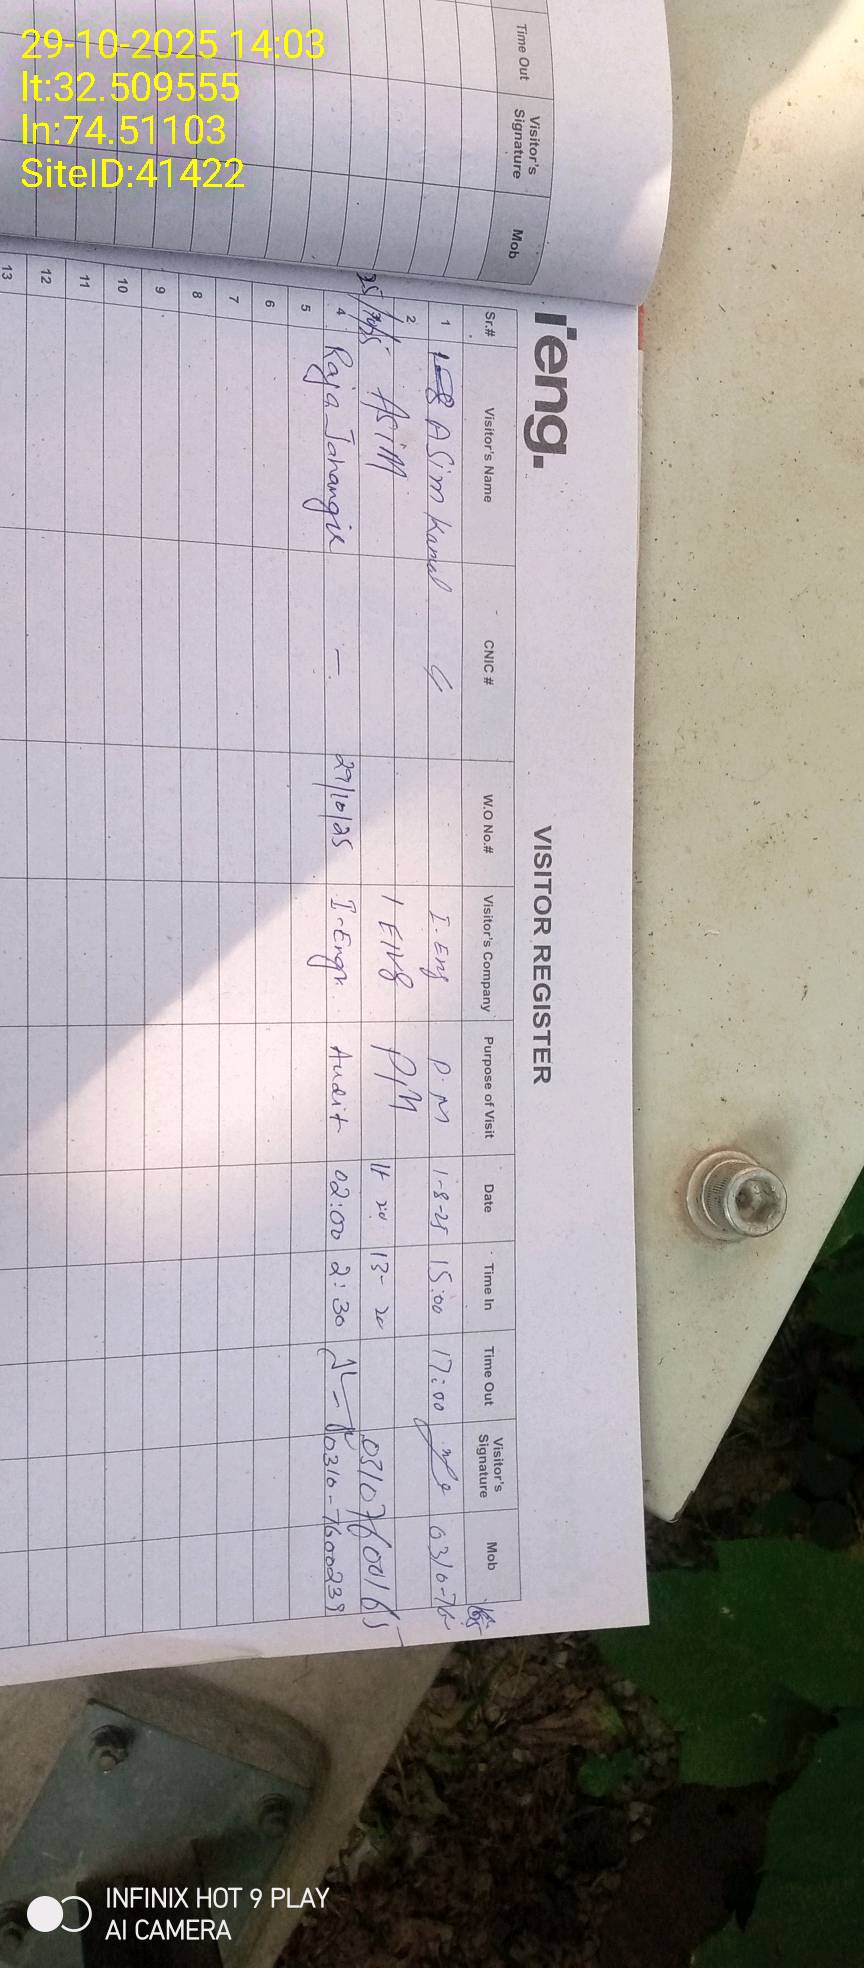 29-10-2025 14:03
lt:32.509555
ln:74.51103
SiteID:41422
Time Out Visitor's Signature Mob
ieng.
VISITOR REGISTER
Sr.# Visitor's Name CNIC # W.O No.# Visitor's Company Purpose of Visit Date Time In Time Out Visitor's Signature Mob
1 Asim Kamal I. Eng P.M 1-8-25 15:00 17:00 0310-76
2
Asim I ENG PM 13-20 03107600165
4 Raja Jahangir - 29/10/25 I-Engr. Audit 02:00 2:30 0310-7600238
5
6
7
8
9
10
11
12
13
INFINIX HOT 9 PLAY
AI CAMERA